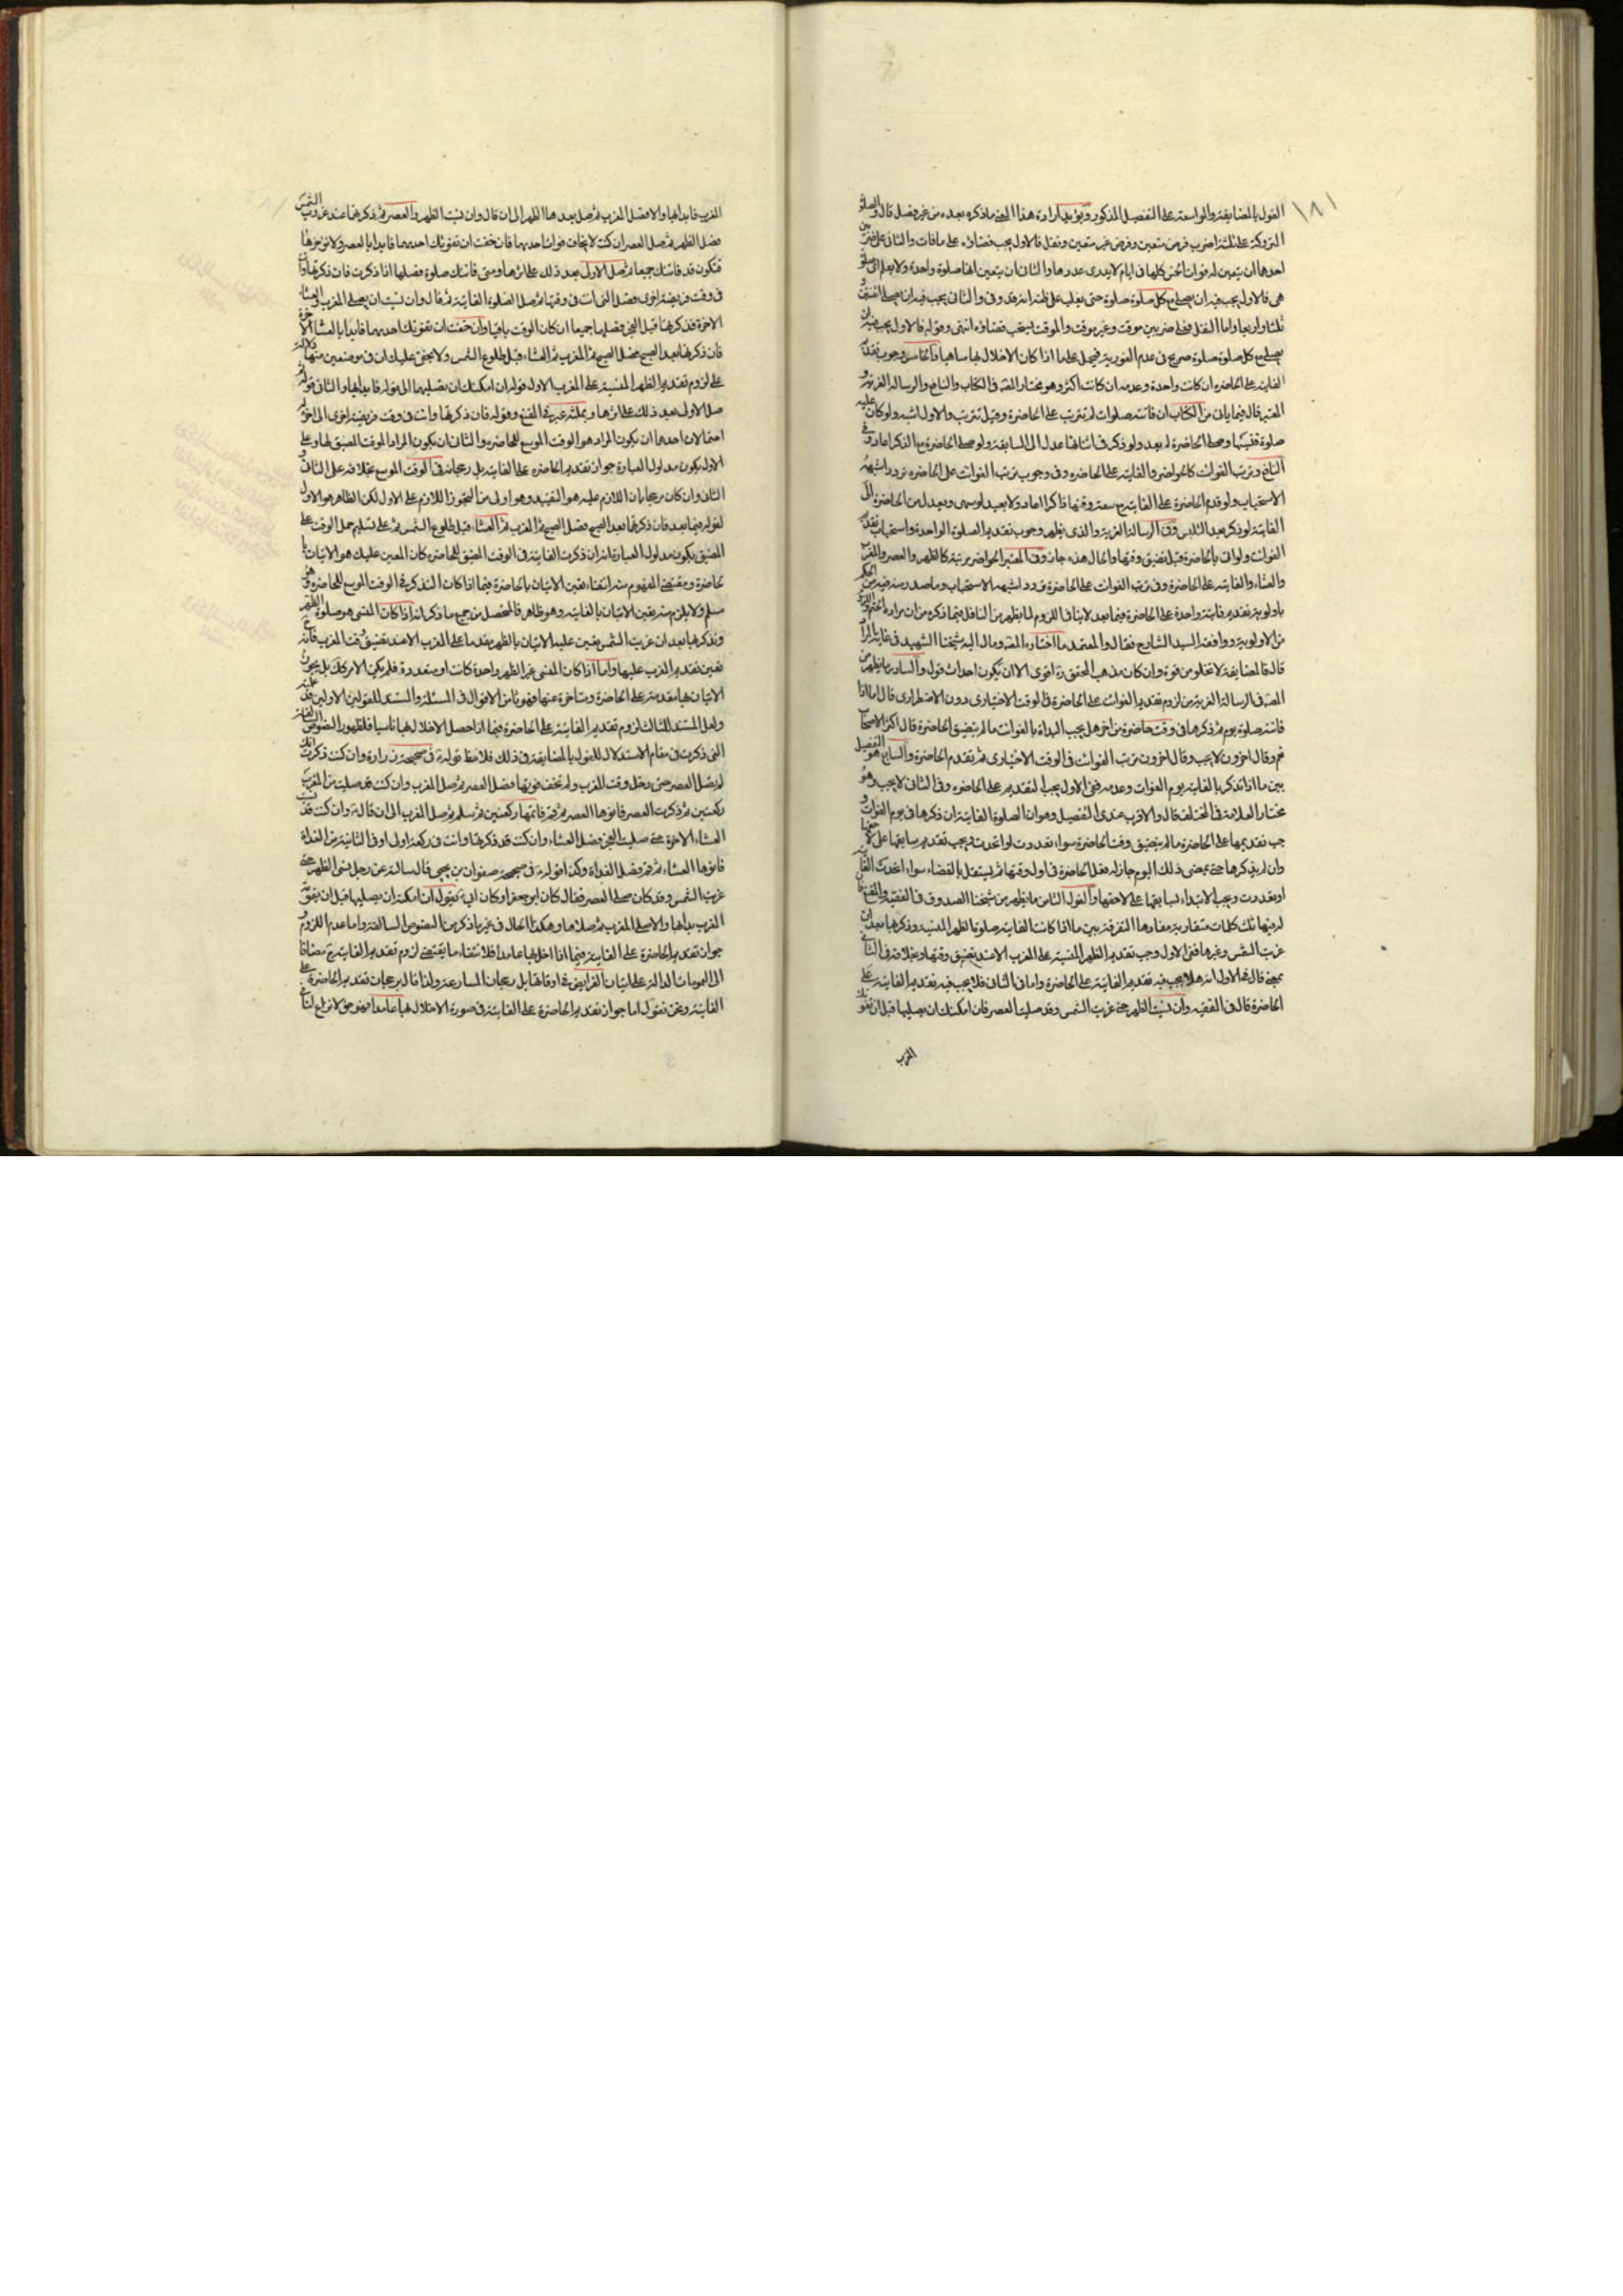 ١٨١
القول بالمضايقة والمواسعة على التفصيل المذكور ويؤيد ارادة هذا المعنى ما ذكره بعده من غير فصل قال والصلوة
المتروكة على ثلثة اضرب فرض متعين وفرض غير متعين ونفل فالاول يجب قضاؤه على ما فات والثانى على ضربين
احدهما ان يتعين له فوات الخمس كلها فى ايام لا يدرى عددها والثانى ان يتعين انها صلوة واحدة ولا يعلم اى صلوة
هى فالاول يجب فيه ان يصلى مع كل صلوة صلوة حتى يغلب على ظنه انه قد وفى والثانى يجب فيه ان يصلى اثنتين و
ثلثا واربعا واما النفل فعلى ضربين موقت وغير موقت والموقت يستحب قضاؤه انتهى وقوله فالاول يجب فيه ان
يصلى مع كل صلوة صلوة صريح فى عدم الفورية فيحمل على ما اذا كان الاخلال بها ساهيا والخامس وجوب تقديم
الفايتة على الحاضرة ان كانت واحدة وعدمه ان كانت اكثر وهو مختار المصنف فى الكتاب والنافع والرسالة العزية و
المعتبر قال فيما ياتى من الكتاب ان فاتته صلوات لم تترتب على الحاضرة وقيل تترتب والاول اشبه ولو كان عليه
صلوة فنسيها وصلى الحاضرة لم يعد ولو ذكر فى اثنائها عدل الى السابقة ولو صلى الحاضرة مع الذكر اعاد وفى
النافع وترتب الفوائت كالحواضر والفايتة على الحاضرة وفى وجوب ترتب الفوائت على الحاضرة تردد اشبهه
الاستحباب ولو قدم الحاضرة على الفايتة مع سعة وقتها ذاكرا اعاد ولا يعيد لو سهى ويعدل من الحاضرة الى
الفايتة لو ذكر بعد التلبس وفى الرسالة العزية والذى يظهر وجوب تقديم الصلوة الواحدة واستحباب تقديم
الفوائت ولو اتى بالحاضرة قبل تضيق وقتها والحال هذه جاز وفى المعتبر الحواضر مرتبة كالظهر والعصر والمغرب
والعشاء والفايتة على الحاضرة وفى ترتب الفوائت على الحاضرة تردد اشبهه الاستحباب وما صدر منه فيه من الحكم
باولوية تقديم فايتة واحدة على الحاضرة فيما بعد لا ينافى اللزوم لما يظهر من التامل فيما ذكره من ان مراده
من الاولوية ووافقه السيد الشارح فقال والمعتمد ما اختاره المصنف ومال اليه شيخنا الشهيد فى غاية المراد
قال فالمضايقة لا تخلو من قوة وان كان مذهب المحقق ره اقوى الا ان يكون احداث قول والسادس ما يظهر من
المصنف فى الرسالة العزية من لزوم تقديم الفوائت على الحاضرة فى الوقت الاختيارى دون الاضطرارى قال اما اذا
فاتته صلوة يوم ثم ذكرها فى وقت حاضرة من اخر هل يجب البداة بالفوائت ما لم يتضيق الحاضرة قال اكثر الاصحاب
نعم وقال اخرون لا يجب وقال اخرون ترتب الفوائت فى الوقت الاختيارى ثم تقدم الحاضرة والسابع هو التفصيل
بين ما اذا تذكر بالفايتة يوم الفوات وعدمه ففى الاول يجب التقديم على الحاضرة وفى الثانى لا يجب وهو
مختار العلامة فى المختلف قال والاقرب عندى التفصيل وهو ان الصلوة الفايتة ان ذكرها فى يوم الفوات و
جب تقديمها على الحاضرة ما لم يتضيق وقت الحاضرة سواء تعددت او اتحدت ويجب تقديم سابقها على لاحقها
وان لم يذكرها حتى يمضى ذلك اليوم جاز له فعل الحاضرة فى اول وقتها ثم ليشتغل بالقضاء سواء اتحدت الفايتة
او تعددت ويجب الابتداء لسابقها على لاحقها والقول الثامن ما يظهر من شيخنا الصدوق فى الفقيه والمقنع فان
له فيها تلك كلمات متقاربة مفادها التفرقة بين ما اذا كانت الفايتة صلوة الظهر المنسية وذكرها بعد ان
غربت الشمس وغيرها ففى الاول وجب تقديم الظهر المنسية على المغرب الا عند تضيق وقتها وبخلافه فى الثانى
بمعنى قال فى الاول انه هل يجب فيه تقديم الفايتة على الحاضرة واما فى الثانى فلا يجب فيه تقديم الفايتة على
الحاضرة قال فى الفقيه وان نسيت الظهر حتى غربت الشمس وقد صليت العصر فان امكنك ان يصليها قبل ان تفوتك
المغرب
المغرب فابدا بها والا فصل المغرب ثم صل بعدها الظهر الى ان قال وان نسيت الظهر والعصر ثم ذكرتهما عند غروب الشمس
فصل الظهر ثم صل العصر ان كنت لا تخاف فوات احديهما فان خفت ان تفوتك احديهما فابدا بالعصر ولا تؤخرها
فتكون قد فاتتك جميعا ثم صل الاولى بعد ذلك على اثرها ومتى فاتتك صلوة فصلها اذا ذكرت فان ذكرتها وانت
فى وقت فريضة اخرى فصل التى انت فى وقتها ثم صل الصلوة الفايتة ثم قال وان نسيت ان يصلى المغرب والعشاء
الاخرة فذكرتهما قبل الفجر فصلهما جميعا ان كان الوقت باقيا وان خفت ان تفوتك احديهما فابدا بالعشاء الاخرة
فان ذكرتهما بعد الصبح فصل الصبح ثم المغرب ثم العشاء قبل طلوع الشمس ولا يخفى عليك ان فى موضعين منها دلالة
على لزوم تقديم الظهر المنسية على المغرب الاول قوله ان امكنك ان يصليها الى قوله فابدا بها والثانى قوله ثم
صل الاولى بعد ذلك على اثرها ومثله عبارة المقنع وقوله فان ذكرتها وانت فى وقت فريضة اخرى الى اخره له
احتمالان احدهما ان يكون المراد هو الوقت الموسع للحاضرة والثانى ان يكون المراد الوقت المضيق لها وعلى
الاول يكون مدلول العبارة جواز تقديم الحاضرة على الفايتة بل رجحانه فى الوقت الموسع بخلافه على الثانى و
الثانى وان كان مرجحا بان اللازم عليه هو التقييد وهو اولى من التجوز اللازم على الاول لكن الظاهر هو الاول
لقوله فيما بعد فان ذكرتهما بعد الصبح فصل الصبح ثم المغرب ثم العشاء قبل طلوع الشمس ثم على تسليم حمل الوقت على
المضيق يكون مدلول العبارة انه ان ذكرت الفايتة فى الوقت المضيق للحاضرة كان المعين عليك هو الاتيان با
لحاضرة ومقتضى المفهوم منه انتفاء تعين الاتيان بالحاضرة فيما اذا كان التذكر فى الوقت الموسع للحاضرة وهو
مسلم ولا يلزم منه تعين الاتيان بالفايتة وهو ظاهر فالمحصل من جميع ما ذكر انه اذا كان المنسى هو صلوة الظهر
وتذكرها بعد ان غربت الشمس يتعين عليه الاتيان بالظهر مقدما على المغرب الا عند تضيق وقت المغرب فانه
تعين تقديم المغرب عليها واما اذا كان المنسى غير الظهر واحدة كانت او متعددة فلم يكن الامر كك بل يجوز
الاتيان بها مقدمة على الحاضرة ومتاخرة عنها فهو ثامن الاقوال فى المسئلة والمستند للقولين الاولين قد
ولعل المستند للثالث لزوم تقديم الفايتة على الحاضرة فيما اذا حصل الاخلال بها ناسيا فلظهور النصوص
التى ذكرت فى مقام الاستدلال للقول بالمضايقة فى ذلك فلاحظ قوله ع فى صحيحة زرارة وان كنت ذكرت انك
لم تصل العصر حتى دخل وقت المغرب ولم تخف فوتها فصل العصر ثم صل المغرب وان كنت قد صليت من المغرب
ركعتين ثم ذكرت العصر فانوها العصر ثم قم فاتمها ركعتين ثم سلم ثم صل المغرب الى ان قال ع وان كنت قد نسيت
العشاء الاخرة حتى صليت الفجر فصل العشاء وان كنت قد ذكرتها وانت فى ركعة اولى او فى الثانية من الغداة
فانوها العشاء ثم قم فصل الغداة وكذا قوله ع فى صحيحة صفوان بن يحيى قال سالته عن رجل نسى الظهر حتى
غربت الشمس وقد كان صلى العصر فقال كان ابو جعفر او كان ابى ع يقول ان امكنه ان يصليها قبل ان يفوته
المغرب بدا بها والا صلى المغرب ثم صلاها وهكذا الحال فى غير ما ذكر من النصوص السالفة واما عدم اللزوم و
جواز تقديم الحاضرة على الفايتة فيما اذا اخل بها عامدا فلانتفاء ما يقتضى لزوم تقديم الفايتة ح مضافا
الى العمومات الدالة على اتيان الفرايض فى اوقاتها بل رجحان المسارعة ولذا قال برجحان تقديم الحاضرة على
الفايتة ونحن نقول اما جواز تقديم الحاضرة على الفايتة فى صورة الاخلال بها عامدا فهو حق لا نزاع لنا فى